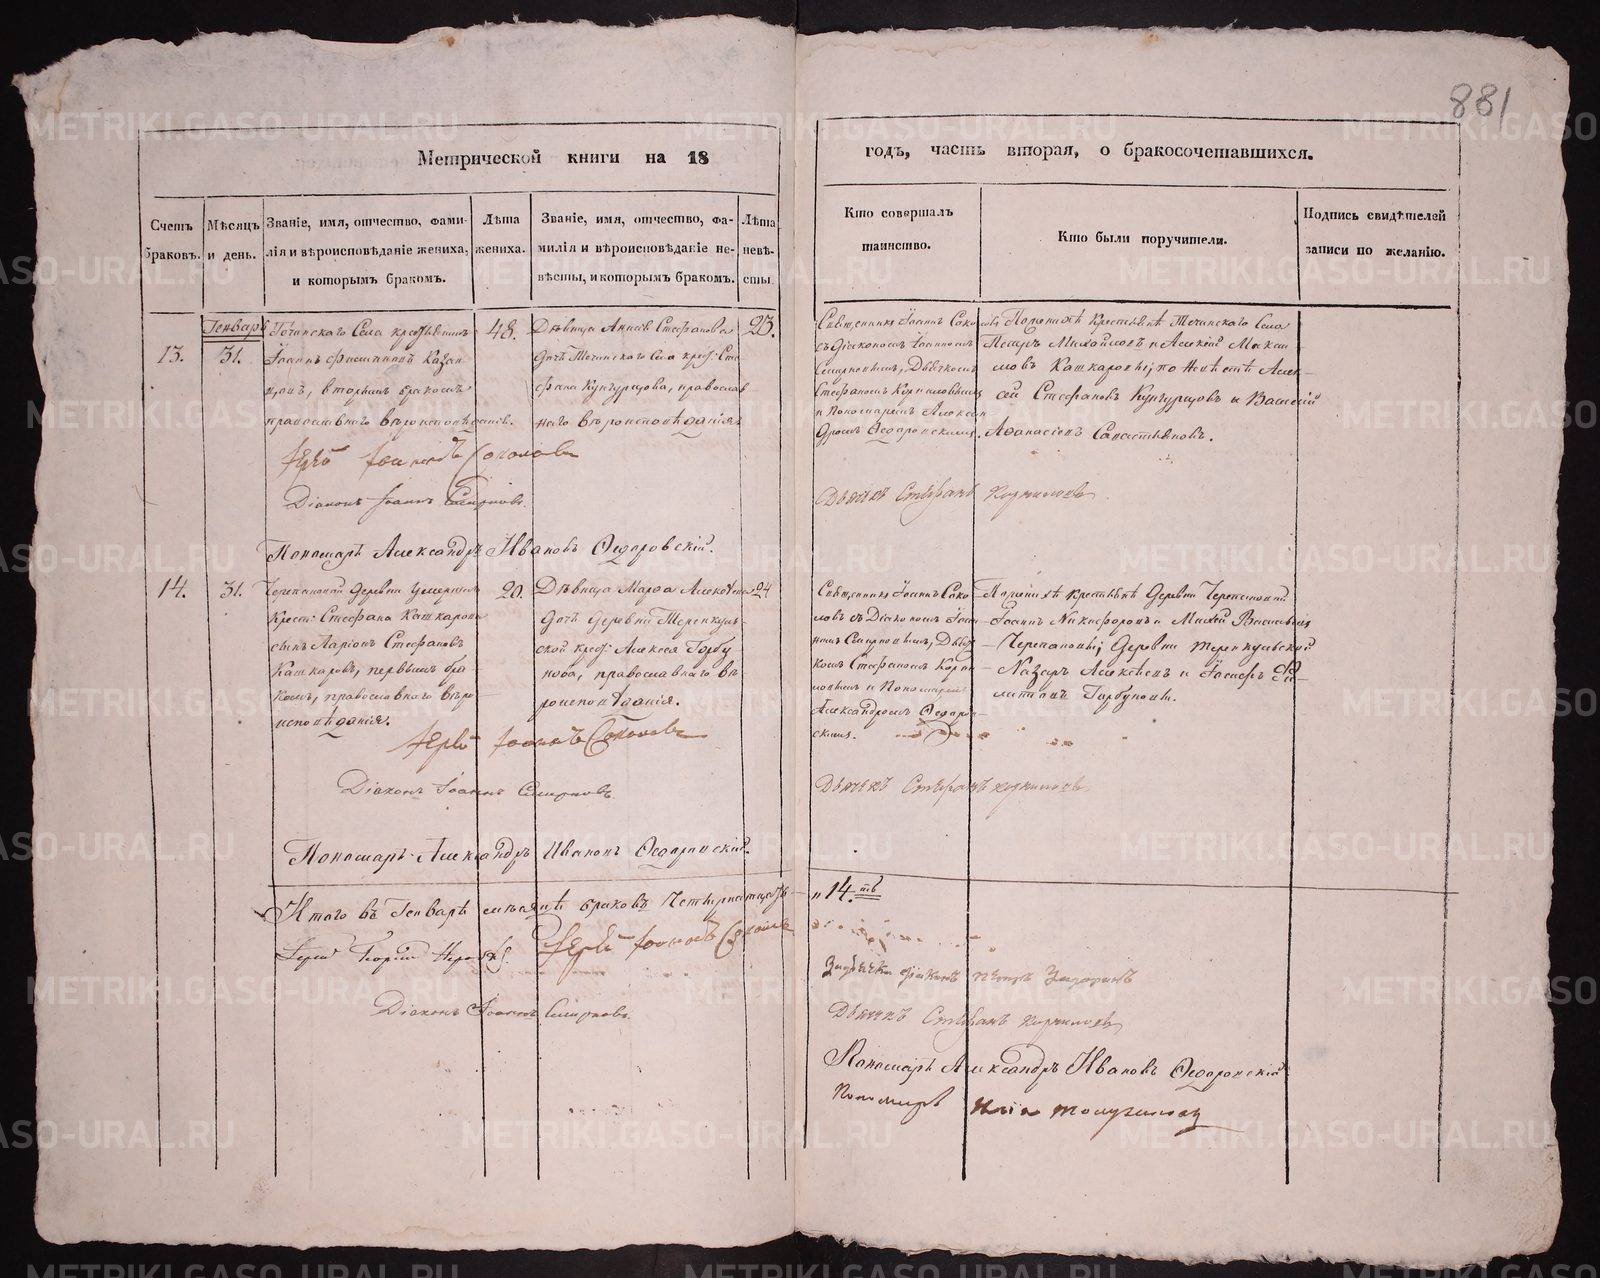 881
Метрической книги на 18
годъ, часть вторая, о бракосочетавшихся.
Счетъ браковъ.
Мѣсяцъ и день.
Званіе, имя, отчество, фами-
лія и вѣроисповѣданіе жениха,
и которымъ бракомъ.
Лѣта
жениха.
Званіе, имя, отчество, фа-
милія и вѣроисповѣданіе не-
вѣсты, и которымъ бракомъ.
Лѣта
невѣ-
сты.
Кто совершалъ
таинство.
Кто были поручители.
Подпись свидѣтелей
записи по желанію.
Генварь
13.
31.
Течинскаго Села крестьянинъ
Іоаннъ Филипповъ Казан
цовъ, вторымъ бракомъ
православнаго вѣроисповѣданія.
48.
Дѣвица Анна Стефанова
дочь Течинскаго Села крест: Сте
фана Кунгурцова, православ
наго вѣроисповѣданія
23.
Священникъ Іоаннъ Соко
ловъ съ Діакономъ Іоанномъ
Смирновымъ, Дьячкомъ
Стефаномъ Корниловымъ
и Пономаремъ Алексан
дромъ Ѳедоровскимъ.
По женихѣ Крестьяне Течинскаго Села
Петръ Михайловъ и Алексей Макси
мовъ Кашкаровы; по невѣстѣ Алек
сей Стефановъ Кунгурцовъ и Василій
Афанасіевъ Савастьяновъ.
Іерей Іоаннъ Соколовъ
Діаконъ Іоаннъ Смирновъ.
Дьячекъ Стефанъ Корниловъ
Пономарь Александръ Ивановъ Ѳедоровскій.
14.
31.
Черепановой деревни умершаго
Крест: Стефана Кашкарова
сынъ Ларіонъ Стефановъ
Кашкаровъ, первымъ бра
комъ, православнаго вѣро
исповѣданія.
20.
Дѣвица Марфа Алексѣева
дочь Деревни Теренкуль
ской крест: Алексея Горбу
нова, православнаго вѣ
роисповѣданія.
24
Священникъ Іоаннъ Соко
ловъ съ Діакономъ Іоан
номъ Смирновымъ, Дьяч
комъ Стефаномъ Корни
ловымъ и Пономаремъ
Александромъ Ѳедоров
скимъ.
По женихѣ крестьяне Деревни Черепановой
Іоаннъ Никифоровъ и Василій
Черепановы; Деревни Теренкульской
Назаръ Алексѣевъ и Іосифъ Фи
липповъ Горбуновы.
Іерей Іоаннъ Соколовъ
Діаконъ Іоаннъ Смирновъ.
Дьячекъ Стефанъ Корниловъ
Пономарь Александръ Ивановъ Ѳедоровскій.
Итого въ Генварѣ месяцѣ браковъ Четырнатцать
14.ть
Іерей Георгій
Іерей Іоаннъ Соколовъ
Діаконъ Іоаннъ Смирновъ.
Дьячекъ Стефанъ Корниловъ
Пономарь Александръ Ивановъ Ѳедоровскій
Пономарь Илія
METRIKI.GASO-URAL.RU